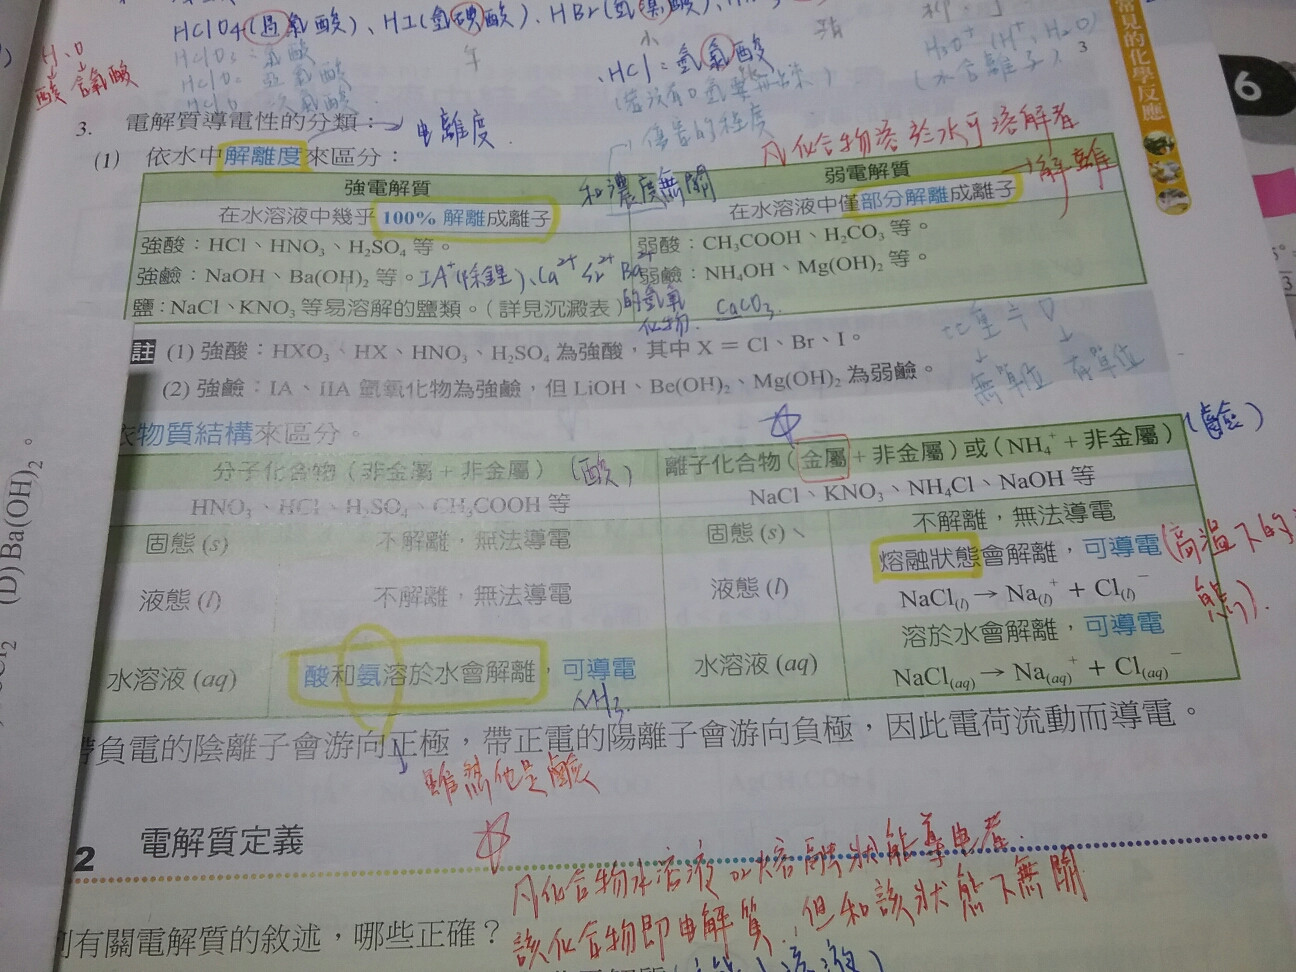 HClO4(過氯酸)、HI(氫碘酸)、HBr(氫溴酸)、
H、O
酸 含氧酸
HClO3:氯酸
亞氯酸
次氯酸
、HCl:氫氯酸
H3O+ (H+、H2O)
(水合離子)
常見的化學反應
6
3. 電解質導電性的分類：
電離度
(1) 依水中解離度來區分：
凡化合物溶於水可溶解者
→解離
和濃度無關
強電解質
弱電解質
在水溶液中幾乎 100% 解離成離子
在水溶液中僅部分解離成離子
強酸：HCl、HNO₃、H₂SO₄ 等。
弱酸：CH₃COOH、H₂CO₃ 等。
強鹼：NaOH、Ba(OH)₂ 等。IA+(除鋰)、Ca2+ Sr2+ Ba2+
弱鹼：NH₄OH、Mg(OH)₂ 等。
鹽：NaCl、KNO₃ 等易溶解的鹽類。(詳見沉澱表)
的氫氧化物.
CaCO3.
註 (1) 強酸：HXO₃、HX、HNO₃、H₂SO₄ 為強酸，其中 X = Cl、Br、I。
(2) 強鹼：IA、IIA 氫氧化物為強鹼，但 LiOH、Be(OH)₂、Mg(OH)₂ 為弱鹼。
比重
無單位 有單位
依物質結構來區分。
分子化合物（非金屬 + 非金屬） (酸)
離子化合物（金屬 + 非金屬）或（NH₄⁺ + 非金屬） (鹼)
HNO₃、HCl、H₂SO₄、CH₃COOH 等
NaCl、KNO₃、NH₄Cl、NaOH 等
固態 (s) 不解離，無法導電
固態 (s) 不解離，無法導電
液態 (l) 不解離，無法導電
液態 (l) 熔融狀態會解離，可導電
NaCl(l) → Na(l)⁺ + Cl(l)⁻
(高溫下的
態).
水溶液 (aq) 酸和氨溶於水會解離，可導電
NH3.
水溶液 (aq) 溶於水會解離，可導電
NaCl(aq) → Na(aq)⁺ + Cl(aq)⁻
帶負電的陰離子會游向正極，帶正電的陽離子會游向負極，因此電荷流動而導電。
雖然他是鹼
2 電解質定義
凡化合物水溶液 or 熔融狀態能導電者.
該化合物即電解質, 但和該狀態下無關
列有關電解質的敘述，哪些正確？
(D) Ba(OH)₂。